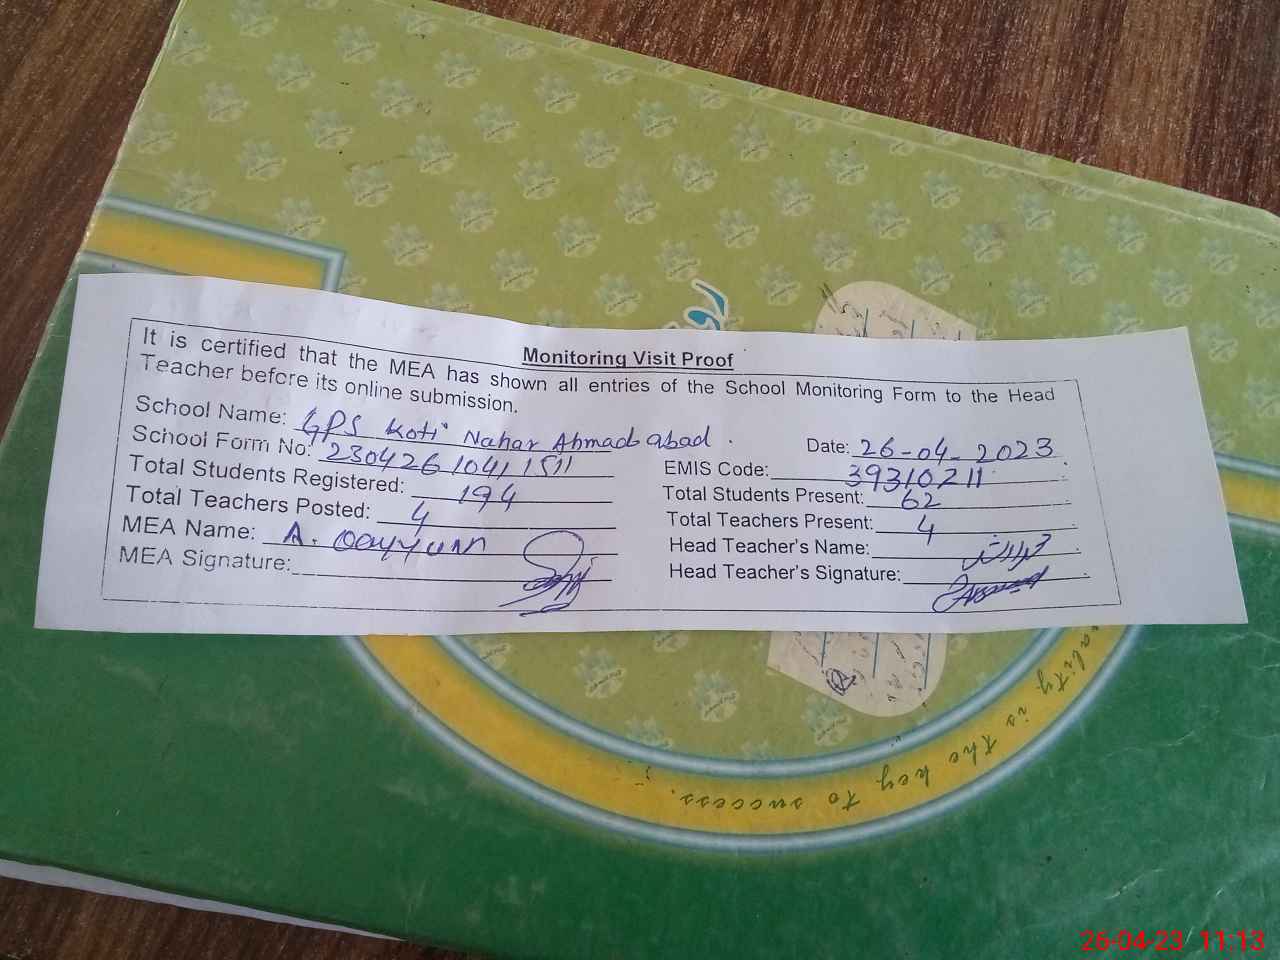 Monitoring Visit Proof
It is certified that the MEA has shown all entries of the School Monitoring Form to the Head
Teacher before its online submission.
School Name: GPS Koti Nahar Ahmad abad.
Date: 26-04-2023
School Form No: 2304261041 1511
EMIS Code: 39310211
Total Students Registered: 194
Total Students Present: 62
Total Teachers Posted: 4
Total Teachers Present: 4
MEA Name: A. Qayyum
Head Teacher's Name:
MEA Signature:
Head Teacher's Signature:
ality is the key to success.
26-04-23 11:13